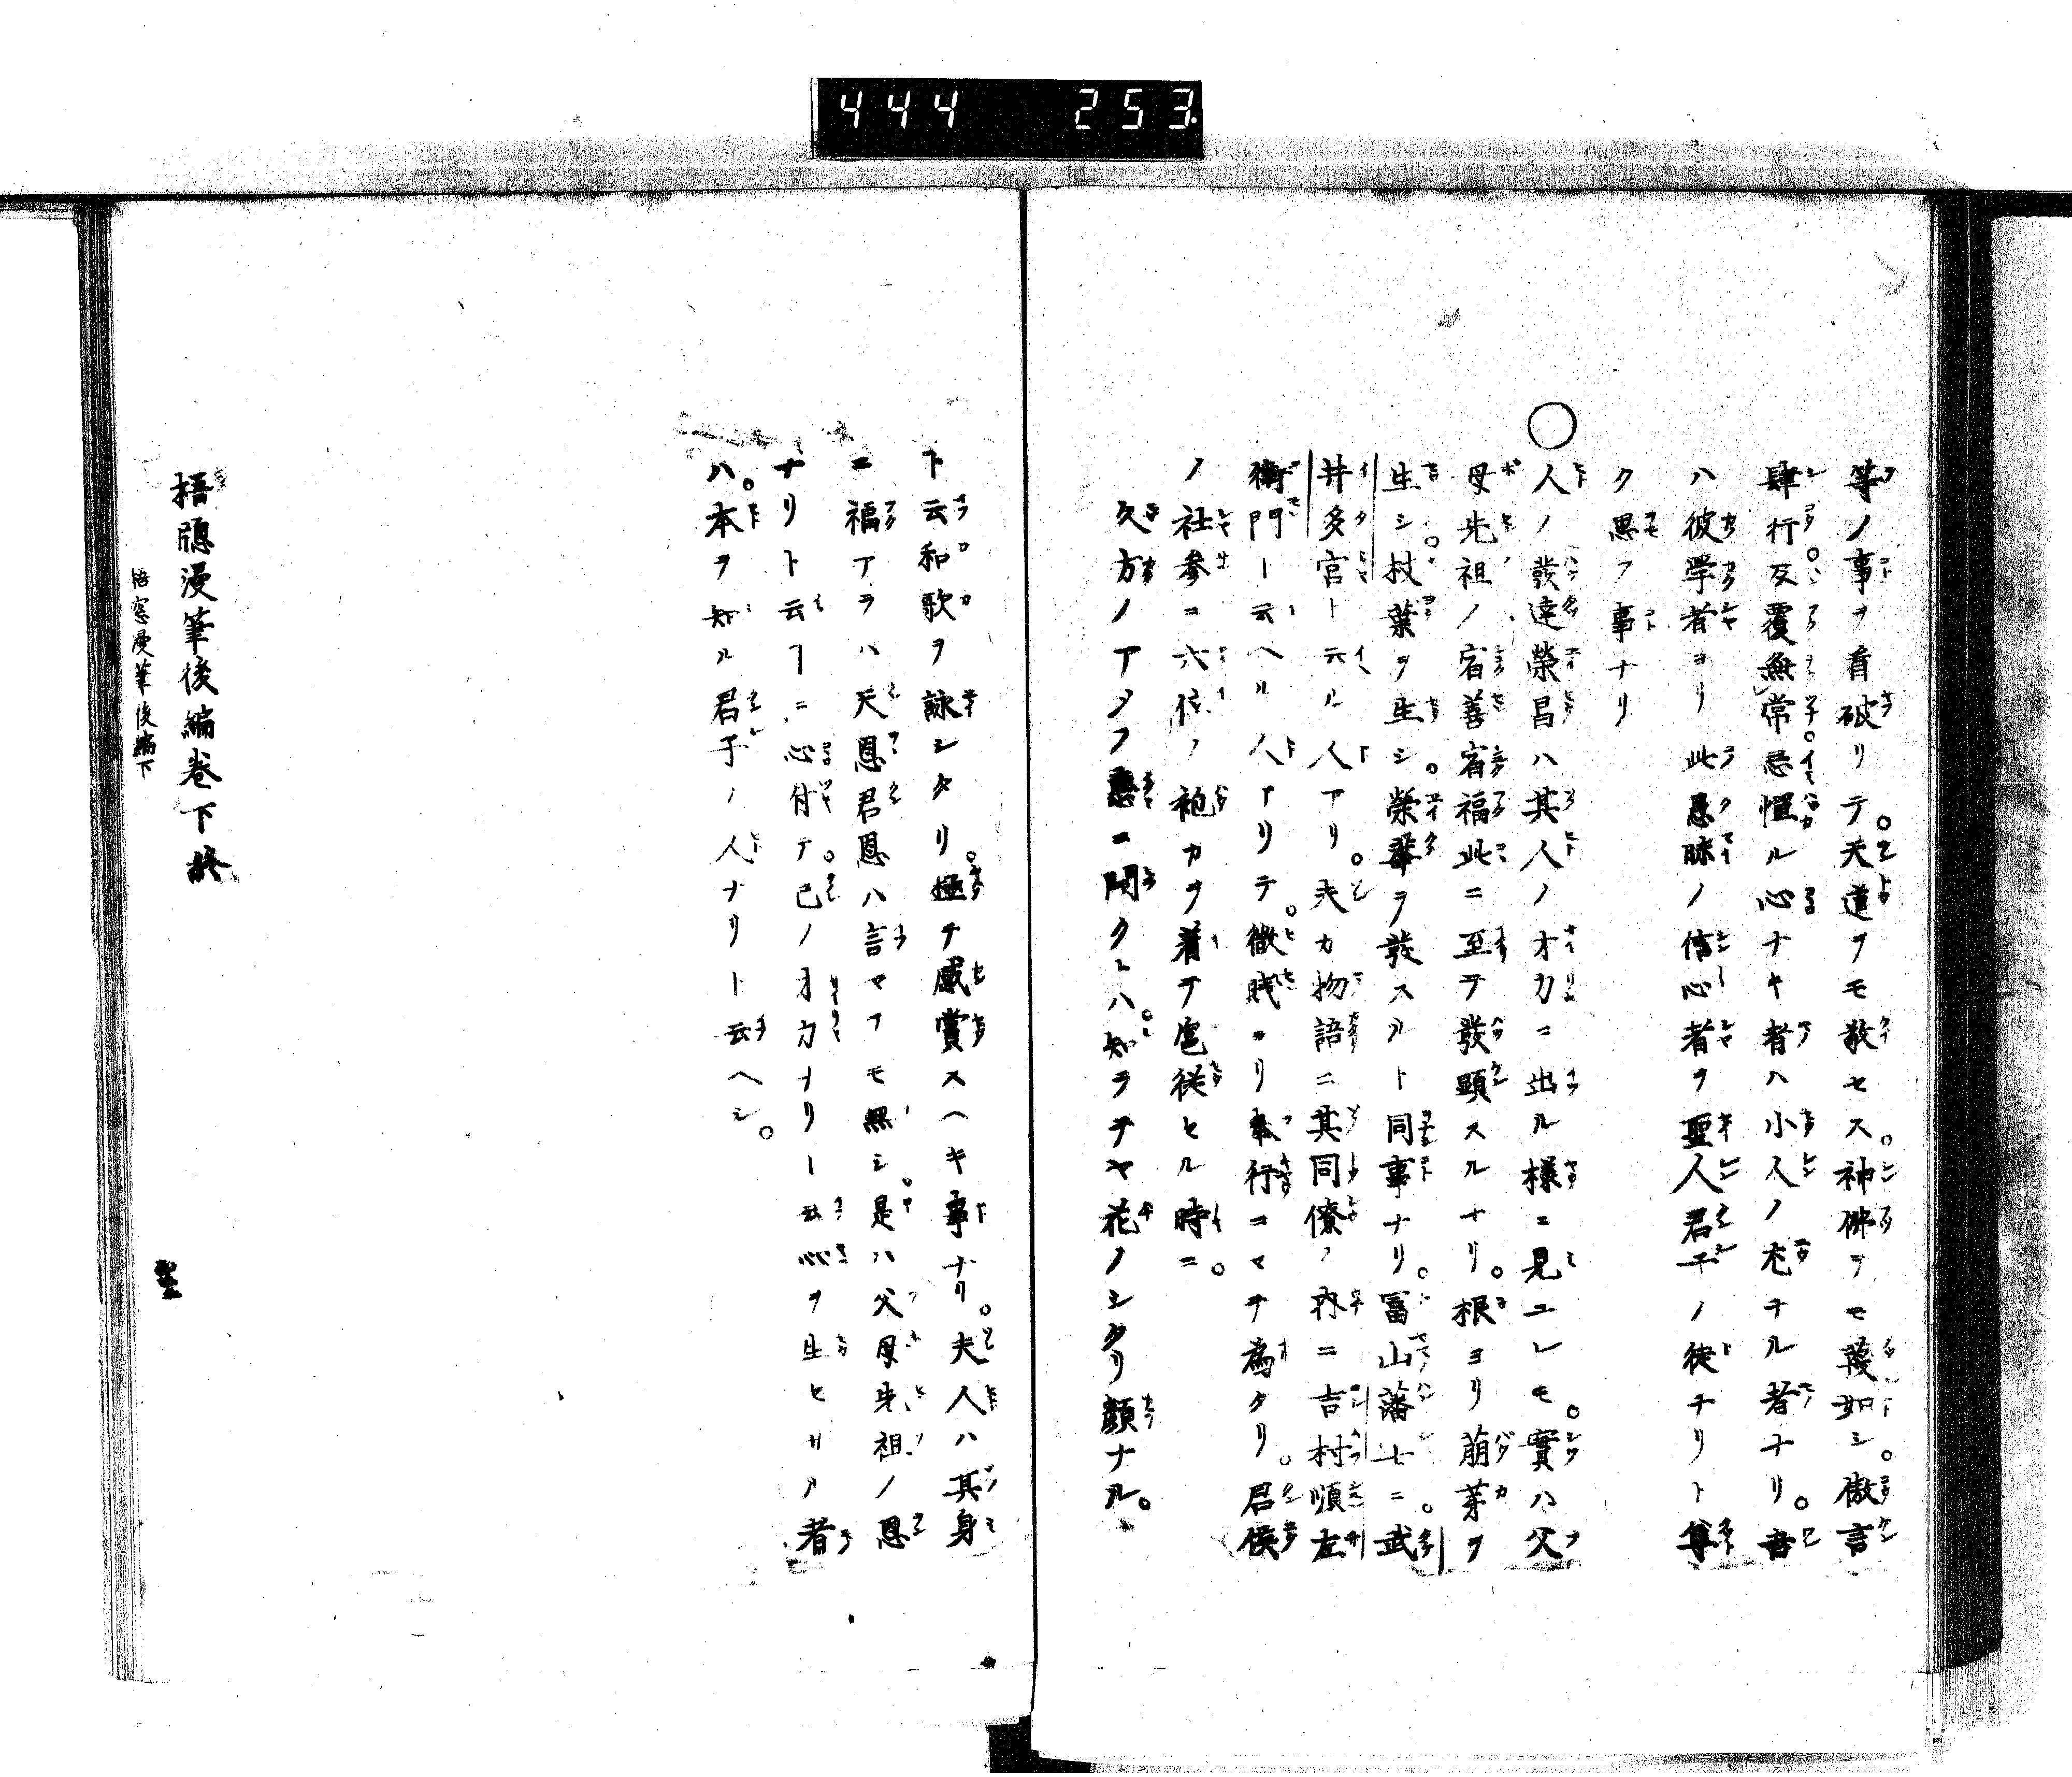 444 253.
等ノ事ヲ看破リテ。天道ヲモ敬セス。神佛ヲモ蔑如シ。傲言
肆行。反覆無常。忌憚ル心ナキ者ハ小人ノ尤ナル者ナリ。吾
ハ彼学者ヨリ此愚昧ノ信心者ヲ聖人君子ノ徒ナリト尊
ク思フ事ナリ
○人ノ發達榮昌ハ其人ノ才力ニ出ル様ニ見ユレモ。實ハ父
母先祖ノ宿善宿福此ニ至テ發顕スルナリ。根ヨリ萠芽ヲ
生シ。枝葉ヲ生シ。榮華ヲ發スルト同事ナリ。冨山藩士ニ。武
井多官ト云ル人アリ。夫カ物語ニ其同僚ノ内ニ吉村順左
衛門ト云ヘル人アリテ。微賎ヨリ奉行ニマテ為タリ。君侯
ノ社参ニ六位ノ袍カヲ着テ扈従セル時ニ。
久方ノアタフ惠ニ開クトハ。知ラテヤ花ノシタリ顔ナル。
ト云和歌ヲ詠シタリ。極テ感賞スヘキ事ナリ。夫人ハ其身
ニ福アラハ天恩君恩ハ言マフモ無シ。是ハ父母先祖ノ恩
ナリト云フニ心付テ。己ノ才力ナリト云心ヲ生セサル者
ハ。本ヲ知ル君子ノ人ナリト云ヘシ。
梧牕漫筆後編巻下終
梧窓漫筆後編下